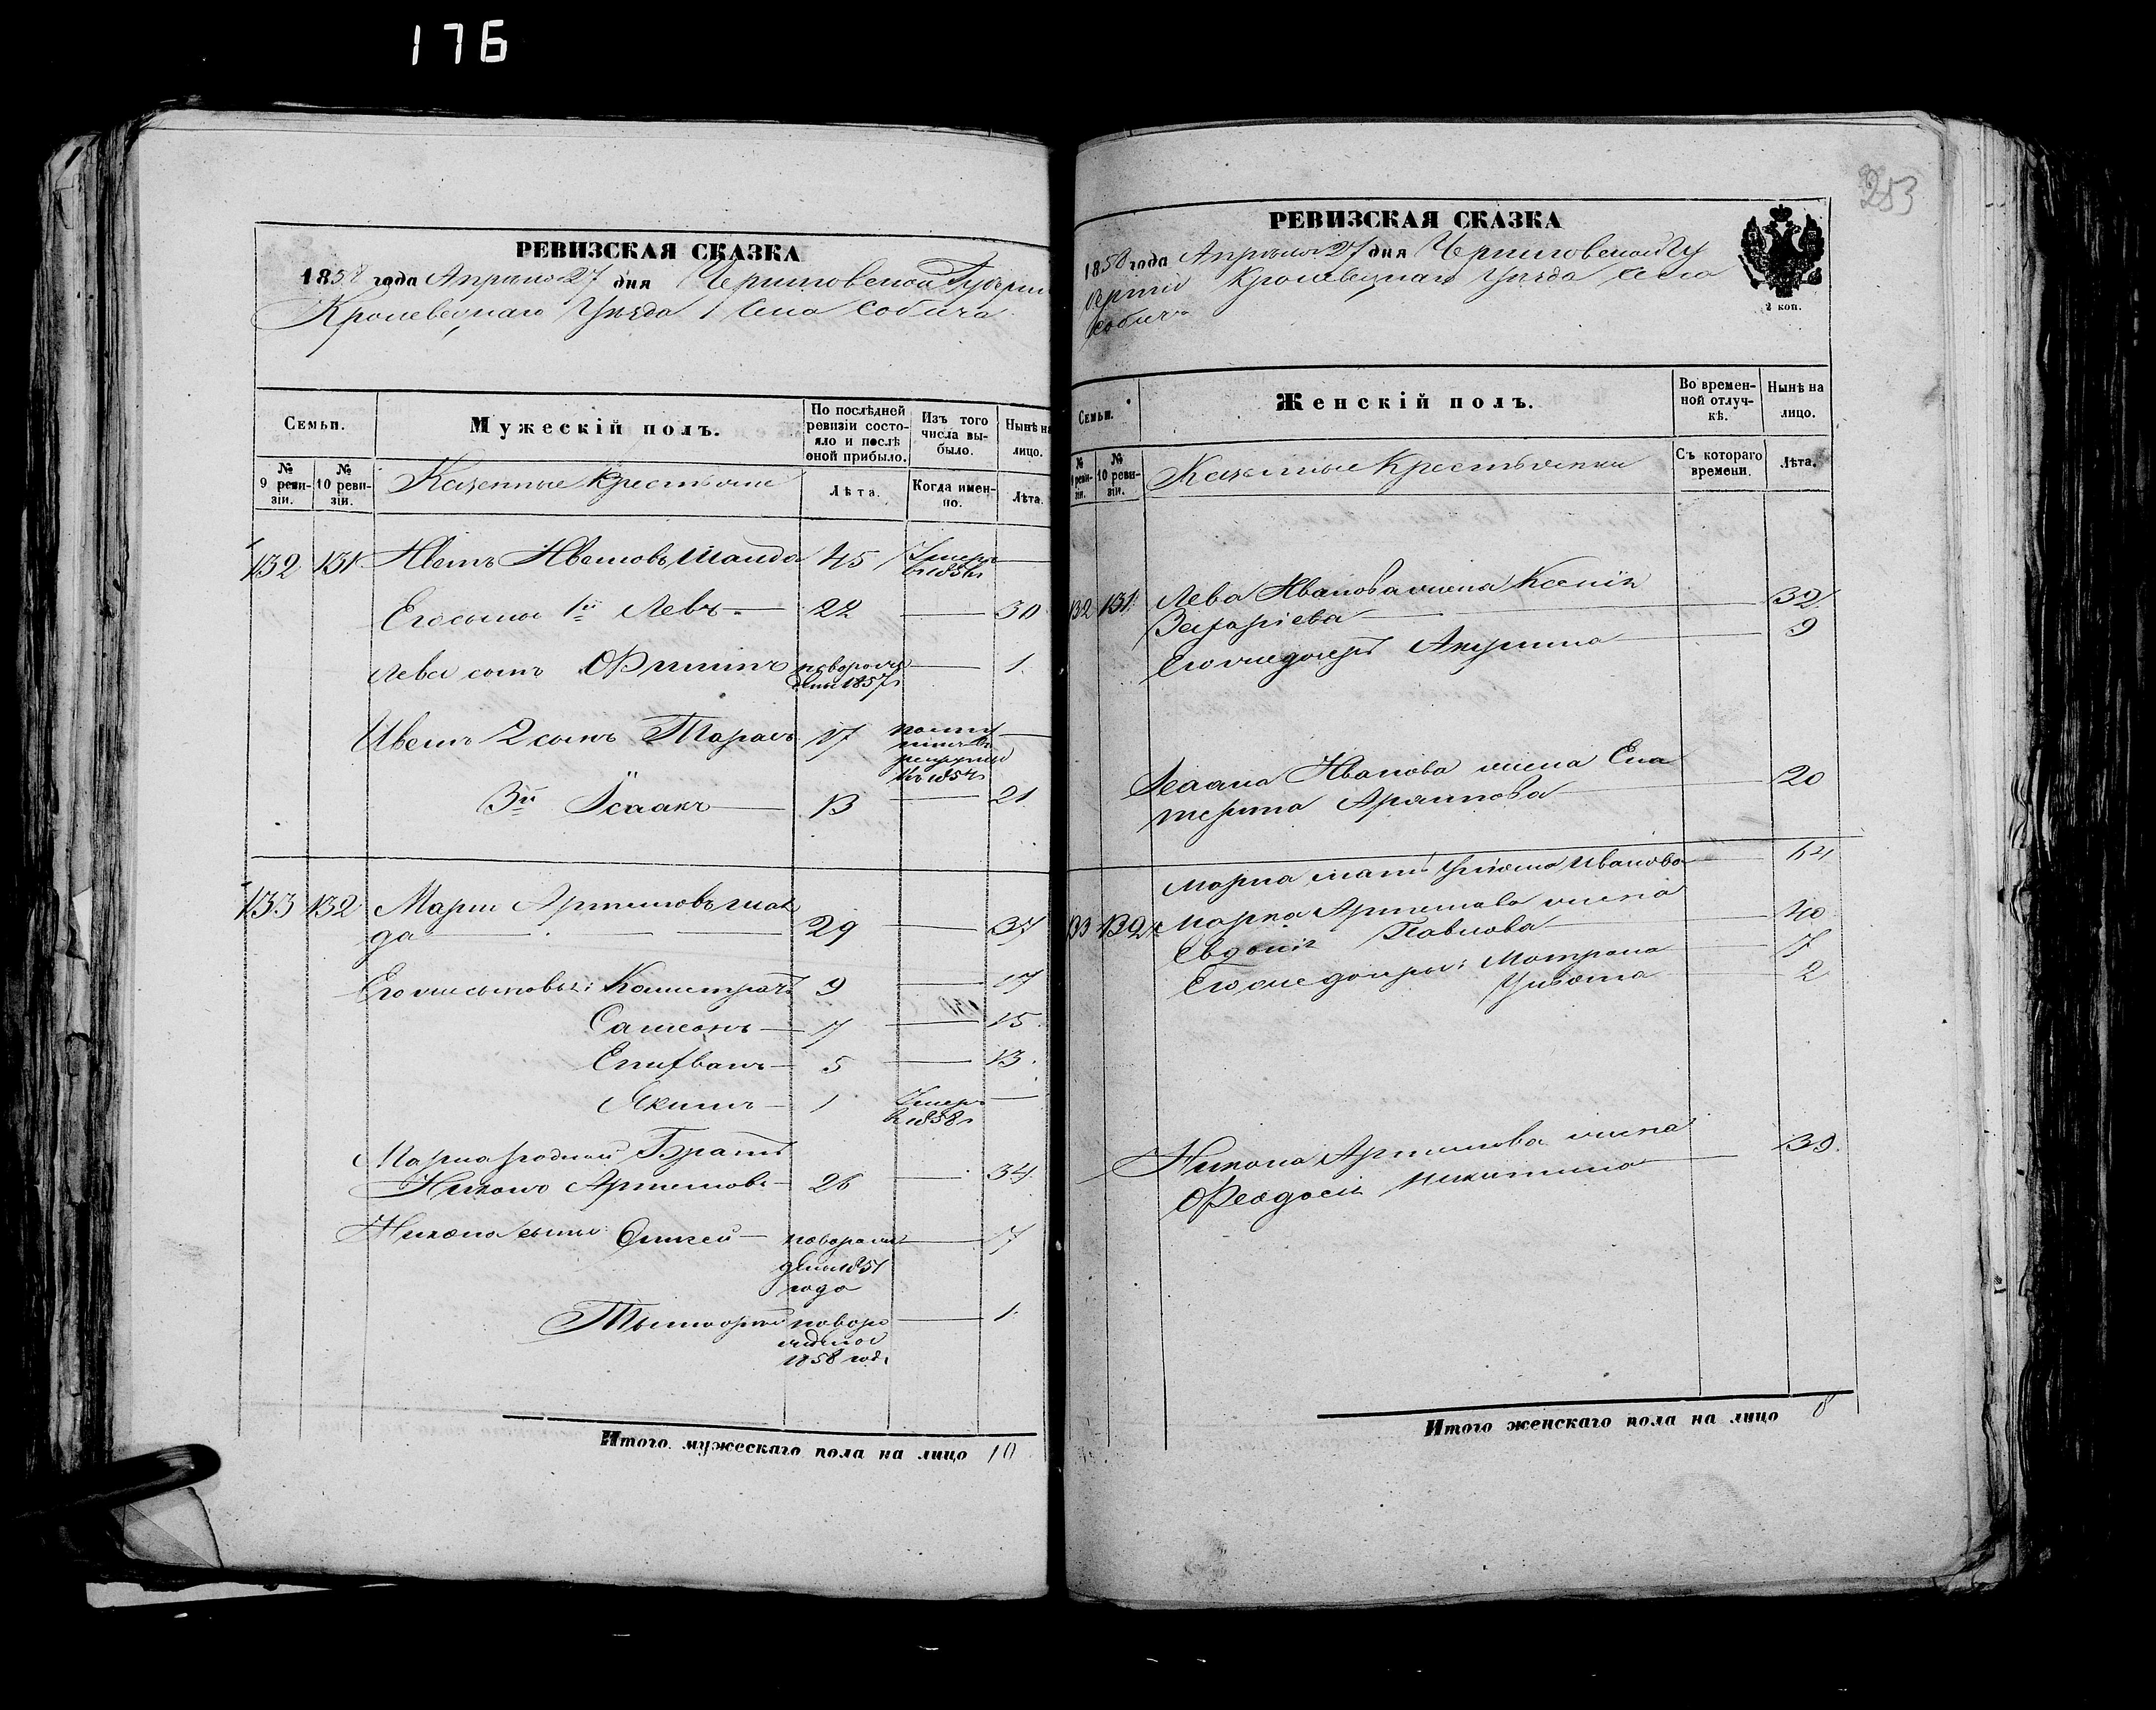 176
РЕВИЗСКАЯ СКАЗКА
1858 года Апреля 27 дня Черниговской Губерни
Кролевецкаго Уезда Села Собича
Семьи.
Мужескій полъ.
По послѣдней ревизіи состояло и послѣ оной прибыло.
Изъ того числа выбыло.
Нынѣ на лицо.
№ 9 ревизіи.
№ 10 ревизіи.
Казенные Крестьяне
Лѣта.
Когда именно.
Лѣта.
132 131 Иванъ Ивановъ Шайда 45 Умеръ в 1856 г —
Его сынъ 1й Левъ — 22 — 30
Лева сынъ Филипъ новорожденый 1857 г — 1
Иванъ 2 сынъ Тарасъ 17 —
3й Ісаакъ — 13 — 21
133 132 Марко Артемовъ Шай
да — 29 — 37
Его же сыновья: 9 — 17
Самсонъ — 7 — 15
Епифанъ — 5 — 13
Якимъ — 1 Умеръ в 1858 г —
Марка родной Братъ
Никонъ Артемовъ — 26 — 34
Никона сынъ — новорож — 7
дены 1851
года
новоро — 1
жденой
1858 год
Итого мужескаго пола на лицо 10
253
РЕВИЗСКАЯ СКАЗКА
1858 года Апреля 27 дня Черниговской Гу
берніи Кролевецкаго Уезда Села
Собича
2 коп.
Семьи.
Женскій полъ.
Во временной отлучкѣ.
Нынѣ на лицо.
№ 9 ревизіи.
№ 10 ревизіи.
Казенные Крестьянки
Съ котораго времени.
Лѣта.
132 131 Лева Иванова жена Ксенія
Захаріева — 32
Его же дочерь Акулина — 9
Ісаака Иванова жена Ека
терина — 20
Марка мать Ульяна Иванова — 64
133 132 Марка Артемова жена
Евдокія Павлова — 40
Его же дочери: Матрона — 7
Ульяна — 2
Никона Артемова жена
Феодосія Никитина — 39
Итого женскаго пола на лицо 8